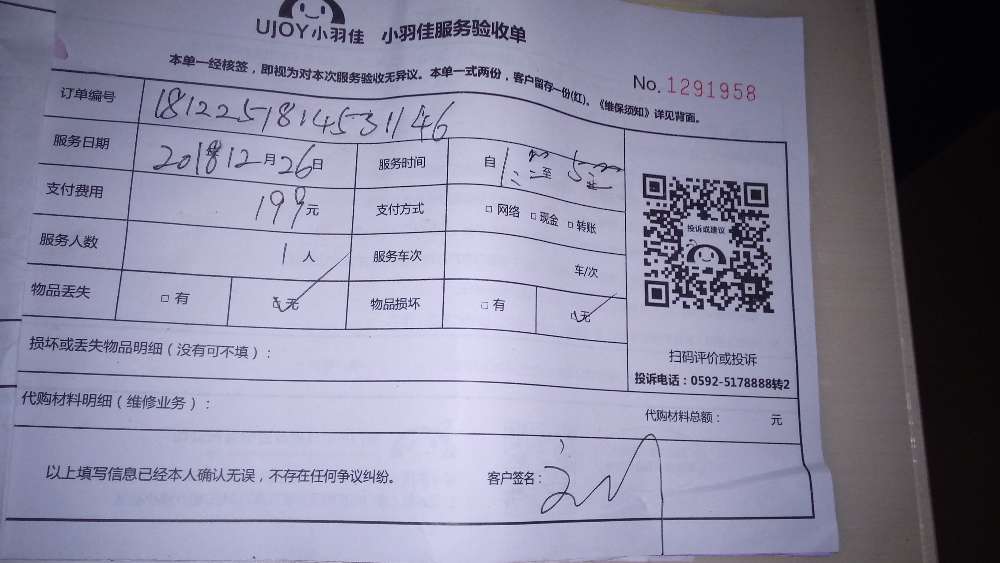 UJOY小羽佳 小羽佳服务验收单
本单一经核签，即视为对本次服务验收无异议。本单一式两份，客户留存一份(红)。《维保须知》详见背面。
No. 1291958
订单编号 1812251814531146
服务日期 2018年12月26日 服务时间 自 1: 至 5:
支付费用 199元 支付方式 □ 网络 □ 现金 □ 转账
服务人数 1 人 服务车次 车/次
物品丢失 □ 有 □ 无 物品损坏 □ 有 □ 无
投诉或建议
损坏或丢失物品明细（没有可不填）：
扫码评价或投诉
投诉电话：0592-5178888转2
代购材料明细（维修业务）： 代购材料总额： 元
以上填写信息已经本人确认无误，不存在任何争议纠纷。 客户签名：